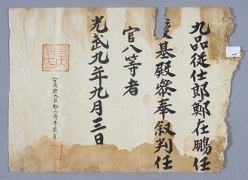 九品從仕郎鄭在鵬任
慶基殿參奉敍判任
官八等者
光武九年九月三日